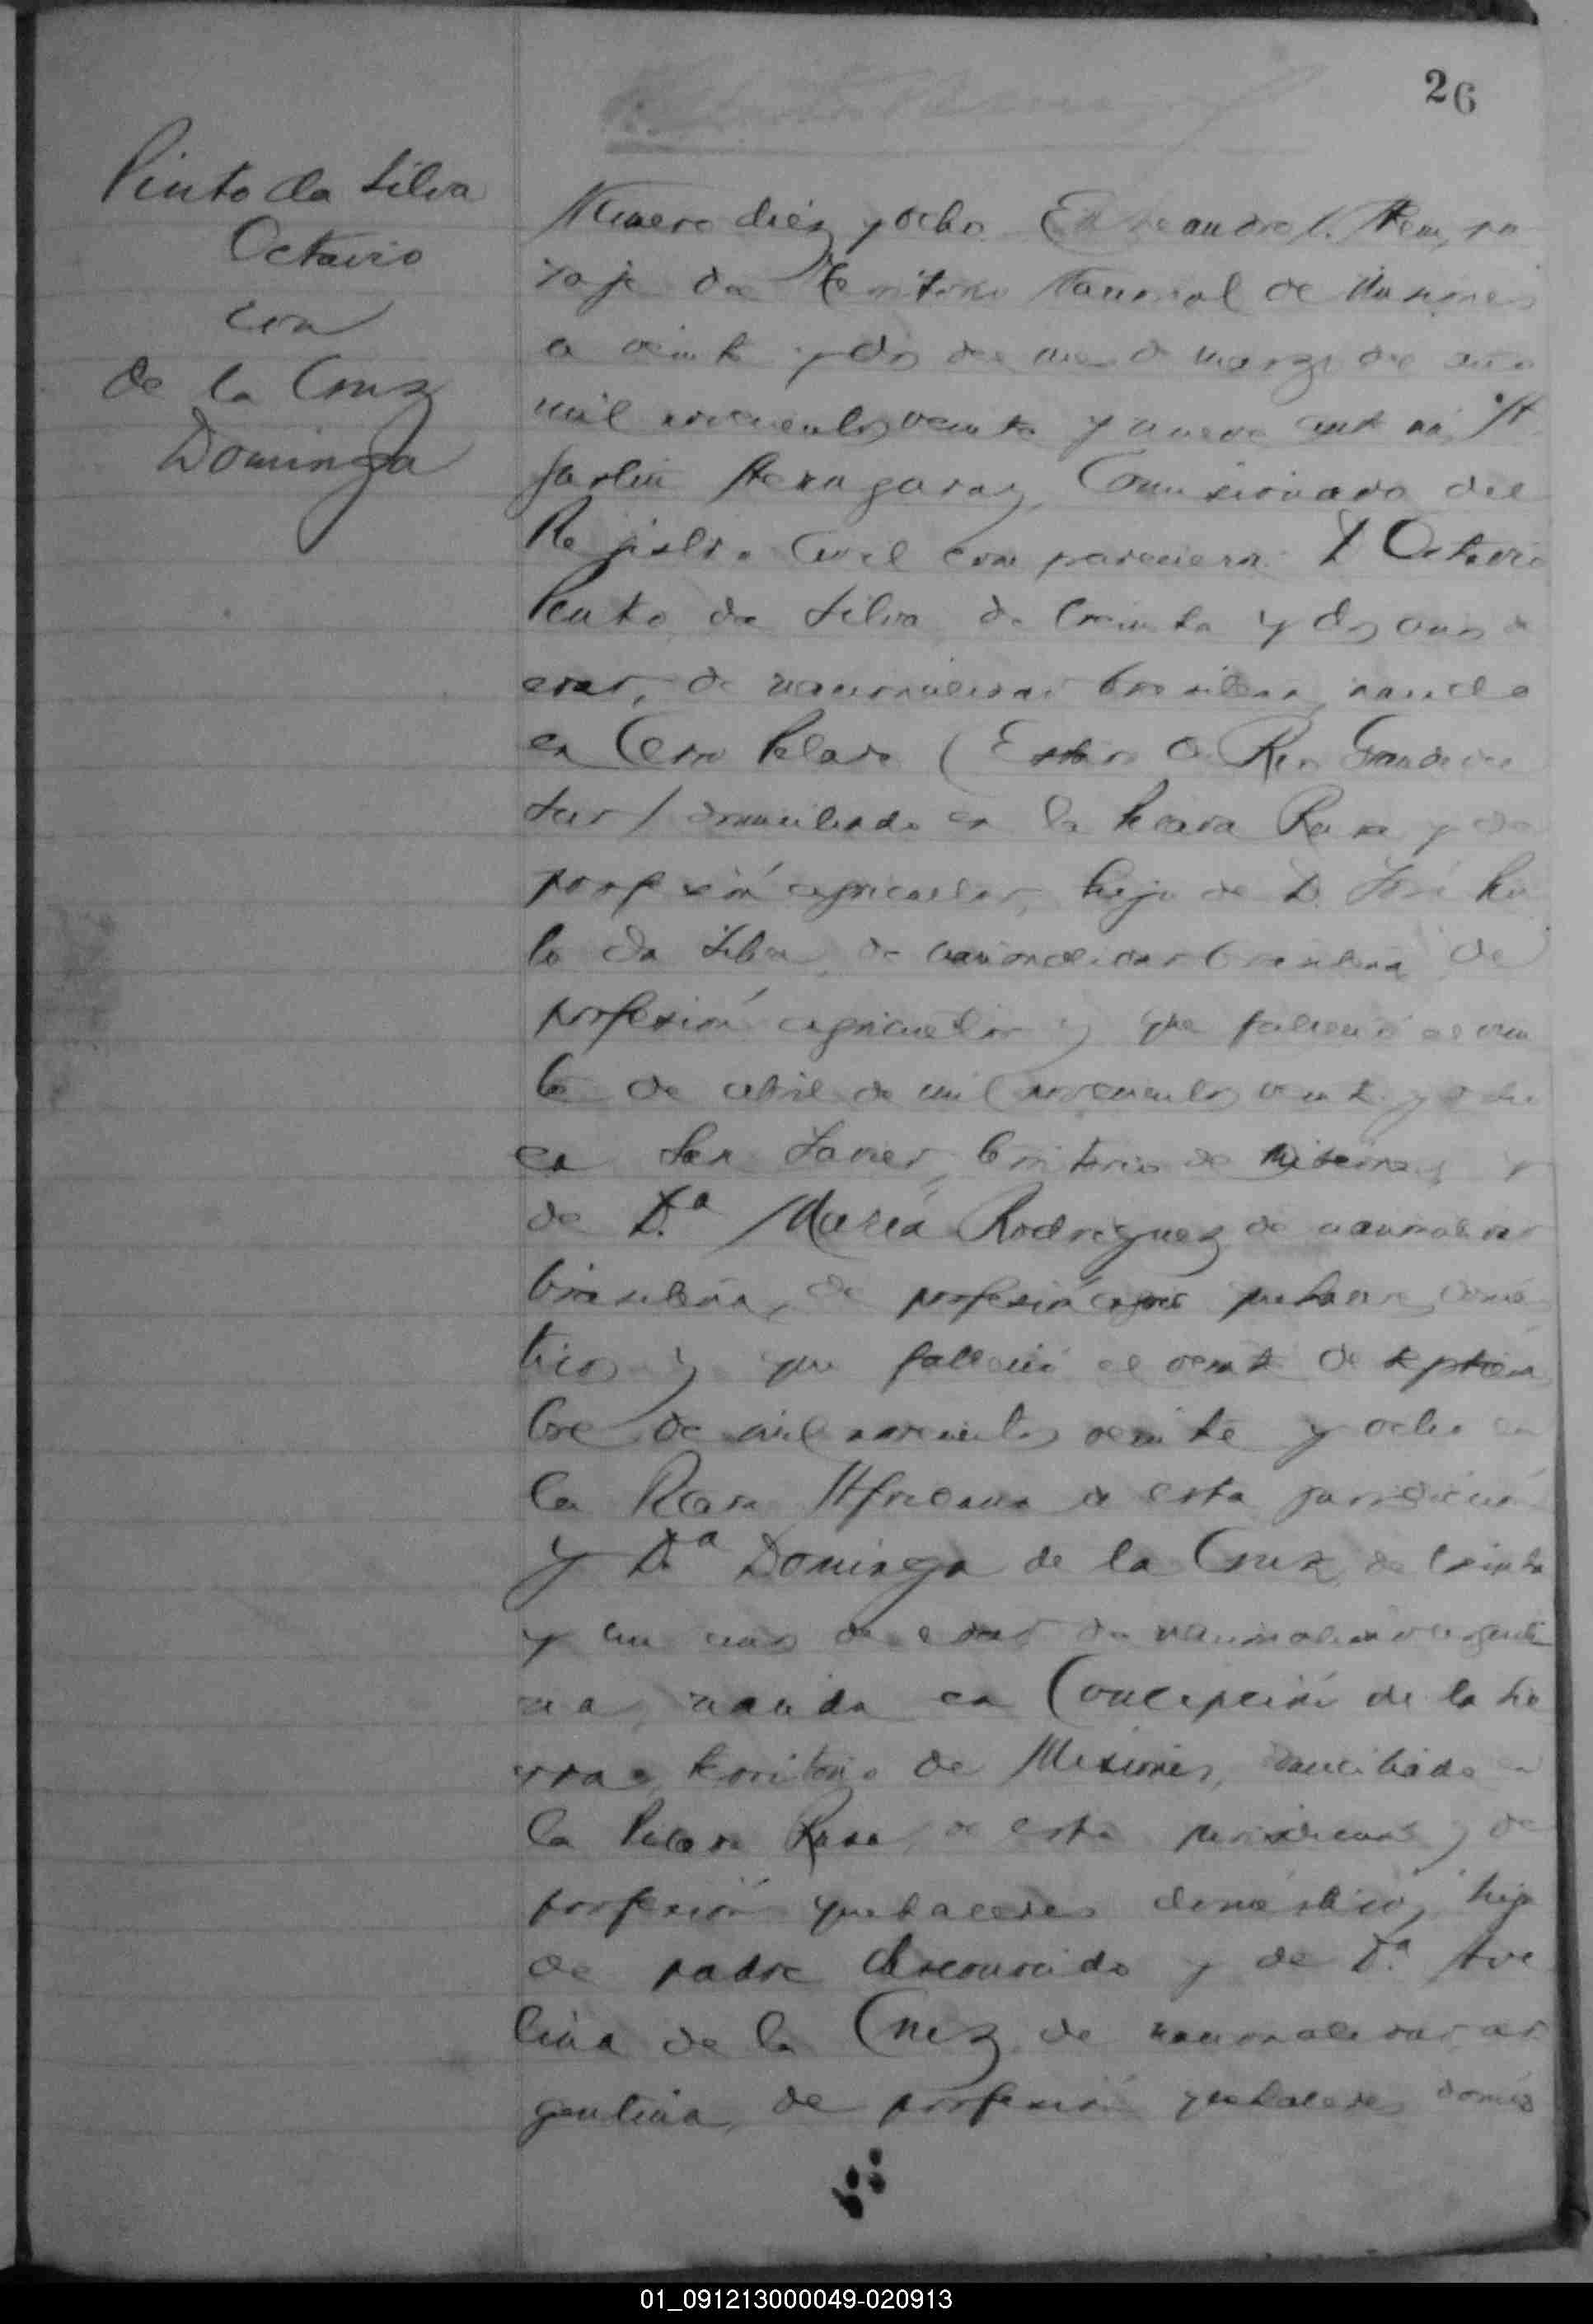 26
Pinto da Silva
Octavio
con
de la Cruz
Dominga
Número diez y ocho. En Leandro N. Alem, pa
raje del Territorio Nacional de Misiones
a veinte y dos del mes de marzo del año
mil novecientos veinte y nueve ante mí,
Comisionado del
Registro Civil comparecieron: D Octavio
Pinto da Silva de treinta y dos años de
edad, de nacionalidad brasilera, nacido
en Cerro Pelado (Estado de Rio Grande del
Sur) domiciliado en la Picada Rusa y de
profesión agricultor, hijo de D. José Pin
to da Silva, de nacionalidad brasilera, de
profesión agricultor y que falleció el vein
te de abril de mil novecientos veinte y ocho
en San Javier, territorio de Misiones y
de Da María Rodriguez de nacionalidad
brasilera, de profesión quehaceres domés
ticos y que falleció el veinte de septiem
bre de mil novecientos veinte y ocho en
la Picada Africana de esta jurisdicción
y Da Dominga de la Cruz, de treinta
y un años de edad de nacionalidad argenti
na, nacida en Concepción de la Sie
rra, territorio de Misiones, domiciliada en
la Picada Rusa, de esta jurisdicción y de
profesión quehaceres domésticos, hija
de padre desconocido y de Da Ave
lina de la Cruz de nacionalidad ar
gentina, de profesión quehaceres domés
01_091213000049-020913